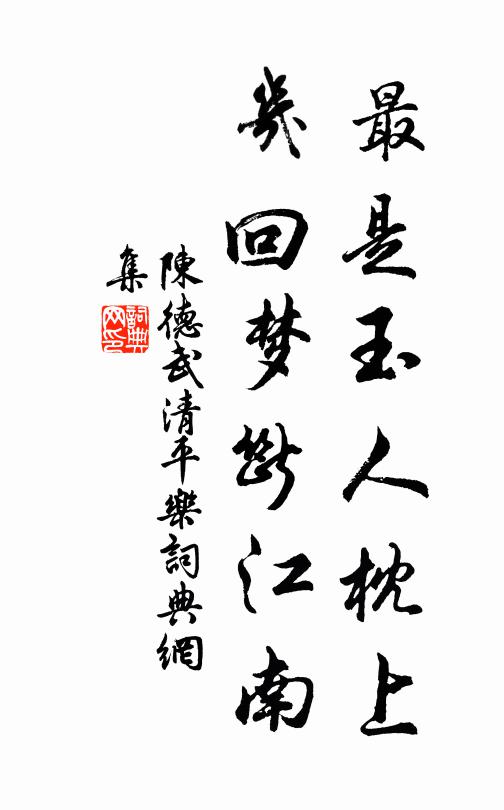 最是玉人枕上
幾回梦斷江南
陳德武清平樂詞典網
集
詞典网印